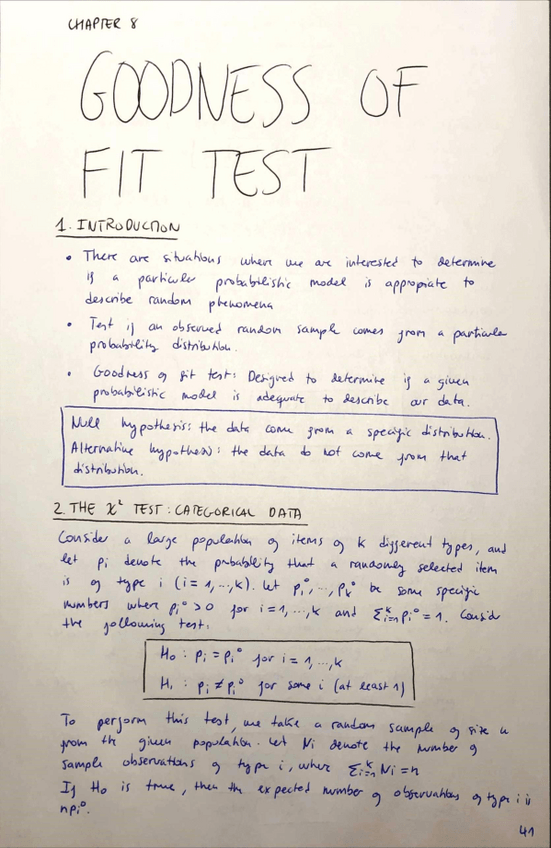 CHAPTER 8
GOODNESS OF
FIT TEST
1. INTRODUCTION
• There are situations where we are interested to determine
if a particular probabilistic model is appropiate to
describe random phenomena
• Test if an observed random sample comes from a particular
probability distribution.
• Goodness of fit test: Designed to determine if a given
probabilistic model is adequate to describe our data.
Null hypothesis: the data come from a specific distribution.
Alternative hypothesis: the data do not come from that
distribution.
2. THE χ² TEST: CATEGORICAL DATA
Consider a large population of items of k different types, and
let pi denote the probability that a randomly selected item
is of type i (i = 1, ..., k). Let p₁°, ..., pₖ° be some specific
numbers where pᵢ° > 0 for i = 1, ..., k and Σᵢ₌₁ᵏ pᵢ° = 1. Consid
the following test:
H₀ : pᵢ = pᵢ° for i = 1, ..., k
H₁ : pᵢ ≠ pᵢ° for some i (at least 1)
To perform this test, we take a random sample of size n
from the given population. Let Ni denote the number of
sample observations of type i, where Σᵢ₌₁ᵏ Ni = n
If H₀ is true, then the expected number of observations of type i is
npᵢ°.
41